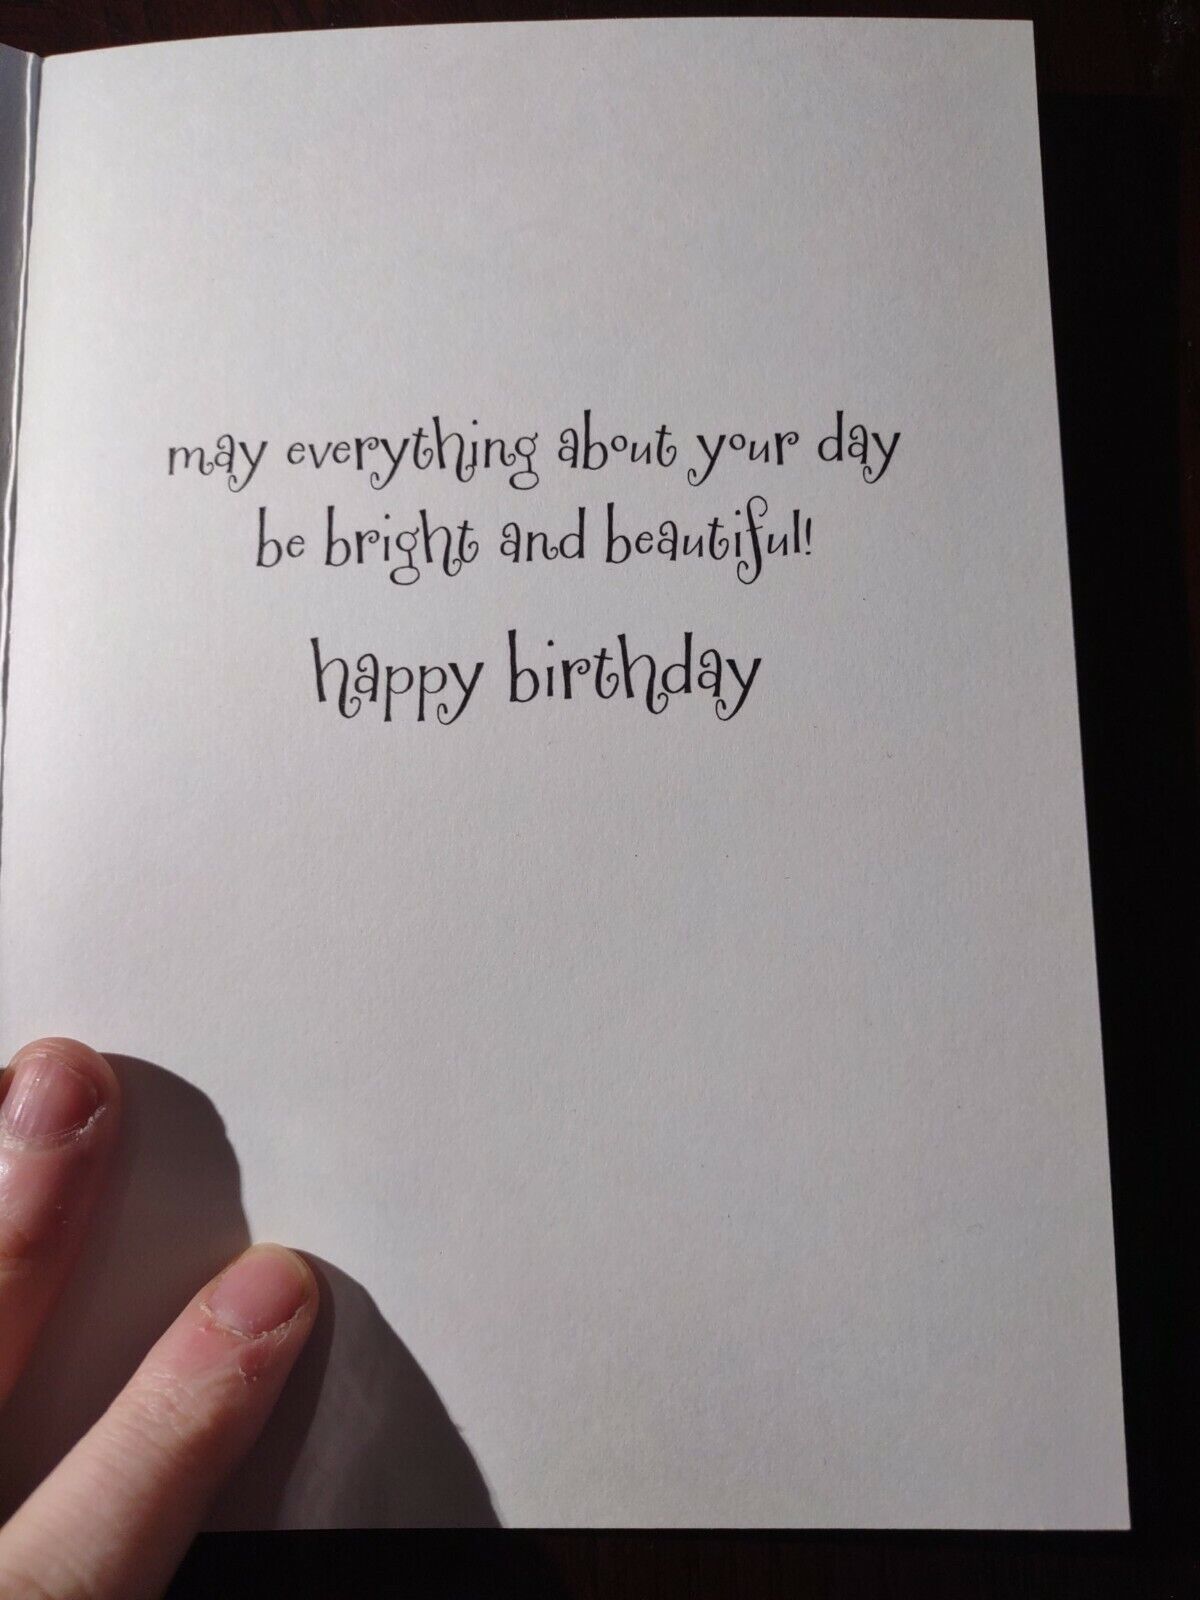 may everything about your day
be bright and beautiful!
happy birthday